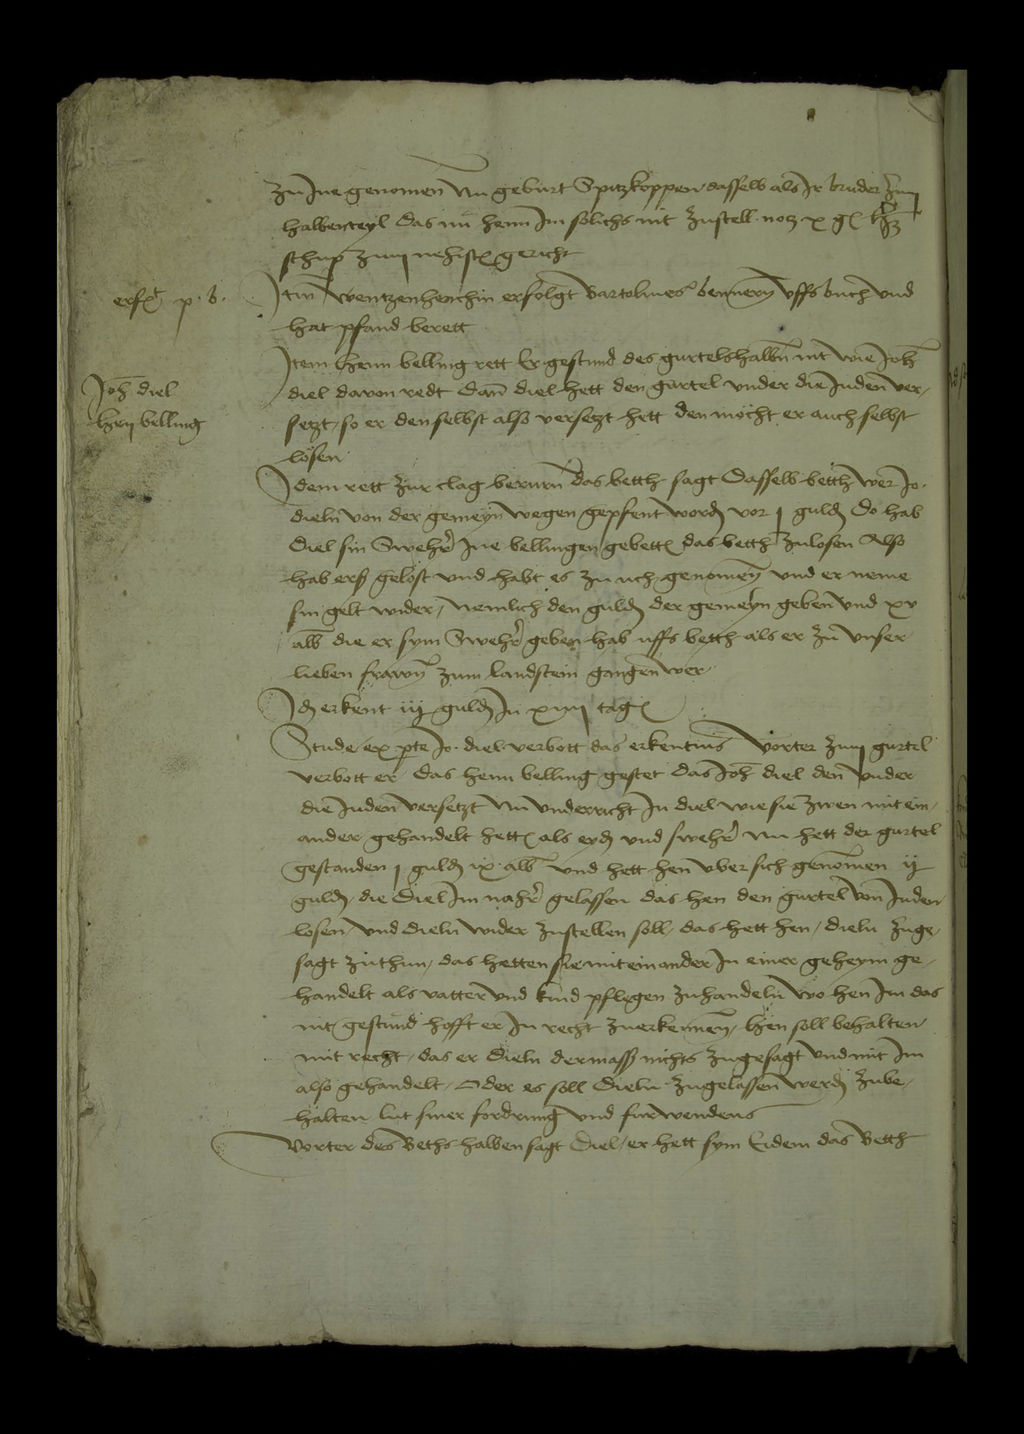 zu Ine genomen Nu geburt Spitzkoppen dasselb als Ir bruder zum
halbenteyl das nu henn Im solichs nit zustell noch x gl
schup zum nehist gericht
erft p. b.
Item Wentzenhenchin erfolgt Bartolmes bennern uffs buch und
hat pfand berett
Joh diel
Hen belling
Item Henn belling rett Er gestund des gurtelshalbn nit wie Joh
diel davon redt dan diel hett den gurtel under die Juden ver,
setzt so er den selbst also versetzt hett den möcht er auch selbst
lösen
Idem rett zur clag berurn das betth sagt dasselb betth wer Jo.
dieln von der gemeyn wegen gepfent word vor j guld Do hab
diel sin Swehr Ine bellingen gebett das betth zulosen Also
hab erß gelöst und habt es zu uch genomen und er neme
sin gelt wider, nemlich den guld der gemeyn geben und xv
alb die er sym Swehr geben hab uffs betth als er zu unser
lieben frawn zum landstein gangen wer
Id erkent iij guld In xiiij tag
Stude ex pte Jo. diel verbott das erkentnis Vorter zum gurtel
verbott er das henn belling gestet das Joh diel den under
die Juden versetzt Nu underricht In diel wie sie zwen mit ein,
ander gehandelt hett als eyd und swehr Nu hett der gurtel
gestanden j guld ix alb und hett hen uber sich genomen ij
guld, die diel Im nahr gelassen das hen den gurtel von Juden
losen und dieln wider zustellen soll, das hett hen, dieln zuge,
sagt zuthun, das hetten sie miteinander In einer geheym ge,
handelt als vatter und kind pflegen zuhandeln wo hen Im das
nit gestund hofft er In recht zuerkennen, hen soll behalten
mit recht, das er dieln dermaß nichts zugesagt und mit Im
also gehandelt, Oder es soll dieln zugelassen werd zube,
halten lut siner fordrung und furwendens
Vorter des Beths halben sagt Diel, er hett sym Eidem das Betth